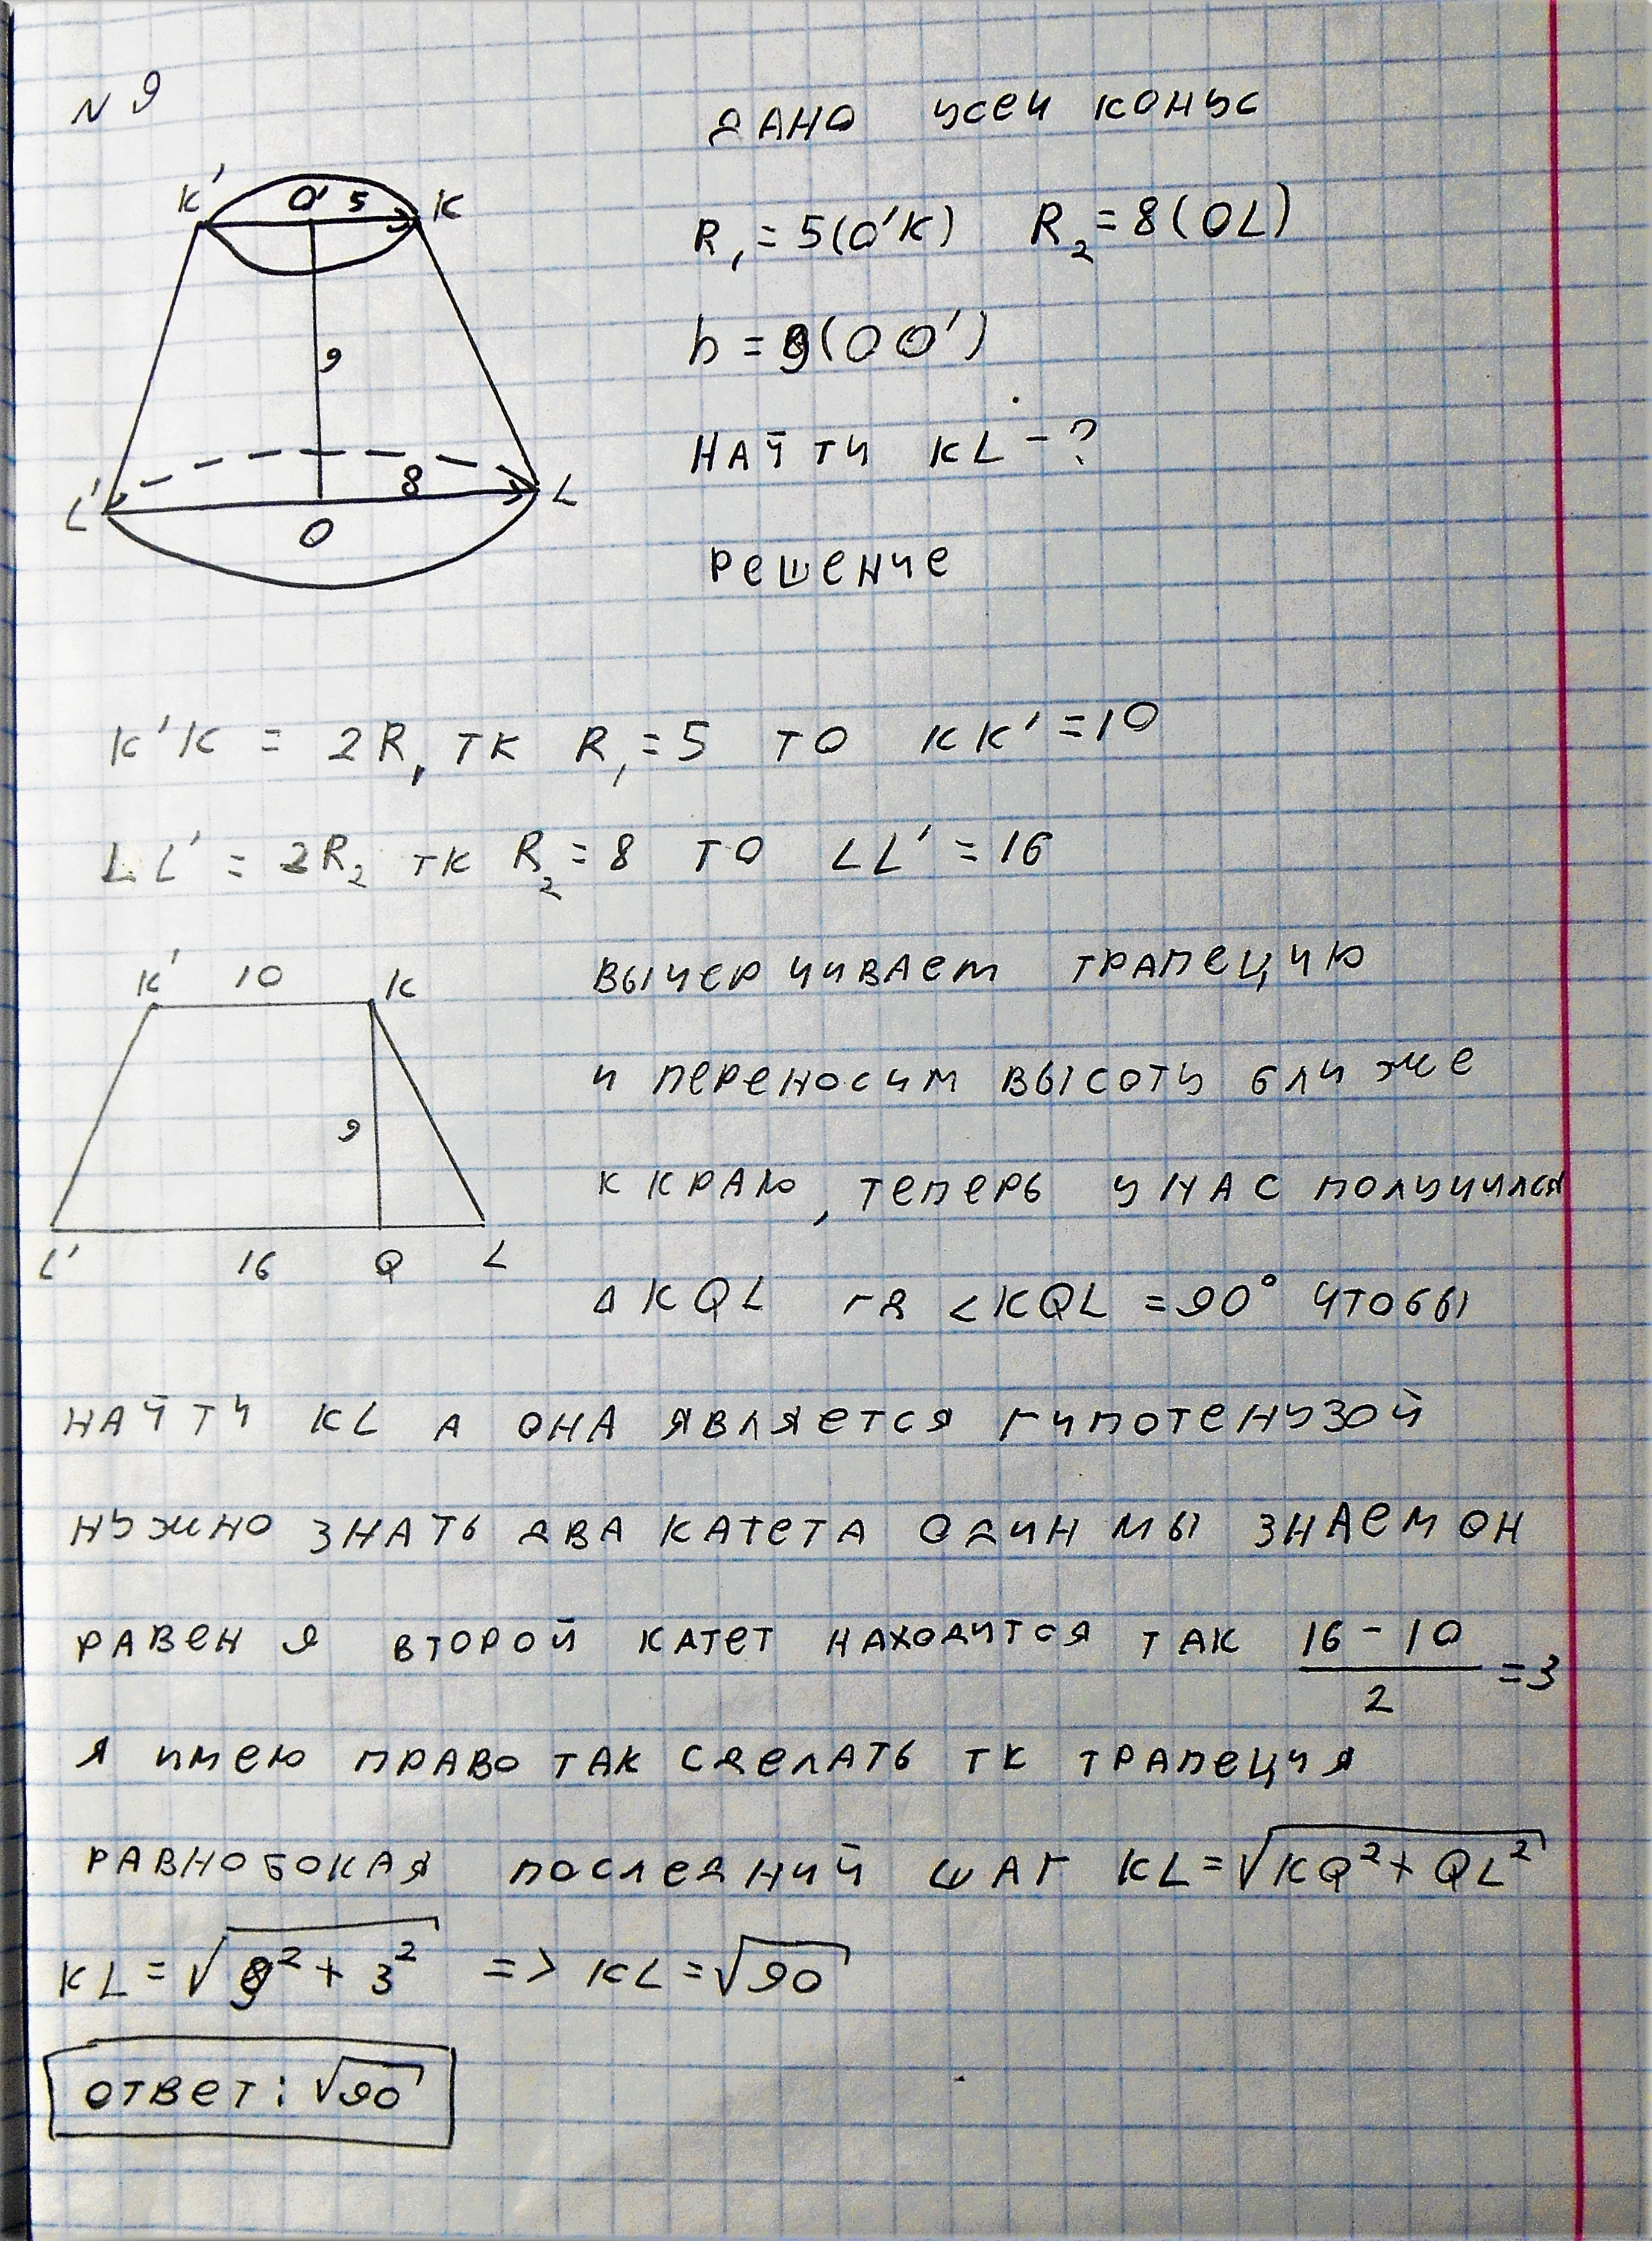 N 9
ДАНО усеч конус
K' O' 5 K
R₁ = 5(O'K) R₂ = 8(OL)
9
h = 9(OO')
НАЙТИ KL - ?
L' 8 L
O
РЕШЕНИЕ
K'K = 2R₁ тк R₁ = 5 то KK' = 10
LL' = 2R₂ тк R₂ = 8 то LL' = 16
K' 10 K
вычерчиваем трапецию
и переносим высоту ближе
9
к краю, теперь у нас получился
L' 16 Q L
Δ KQL гд ∠KQL = 90° чтобы
найти KL а она является гипотенузой
нужно знать два катета один мы знаем он
равен 9 второй катет находится так (16 - 10)/2 = 3
я имею право так сделать тк трапеция
равнобокая последний шаг KL = √KQ² + QL²
KL = √9² + 3² => KL = √90
ответ: √90